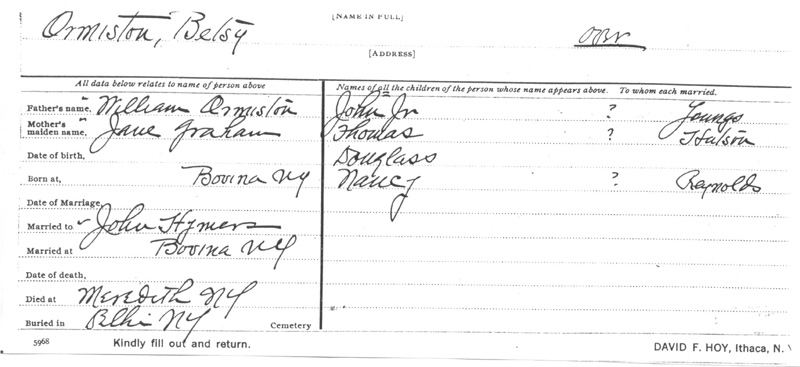 Ormiston, Betsy
[NAME IN FULL]
[ADDRESS]
All data below relates to name of person above
Names of all the children of the person whose name appears above. To whom each married.
Father's name, William Ormiston
John Jr ? Youngs
Mother's maiden name, Jane Graham
Thomas ? Hutson
Date of birth,
Douglass
Born at, Bovina NY
Nancy ? Reynolds
Date of Marriage,
Married to John Hymers
Married at Bovina NY
Date of death,
Died at Meredith NY
Buried in Delhi NY Cemetery
5968 Kindly fill out and return. DAVID F. HOY, Ithaca, N.